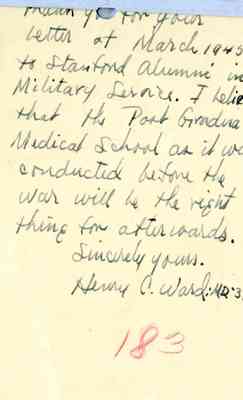 Thank you for your
letter of March 1945
to Stanford Alumni in
Military Service. I belie
that the Post Gradua
Medical School as it wa
conducted before the
war will be the right
thing for afterwards.
Sincerely yours.
Henry C. Ward, MD '3
183